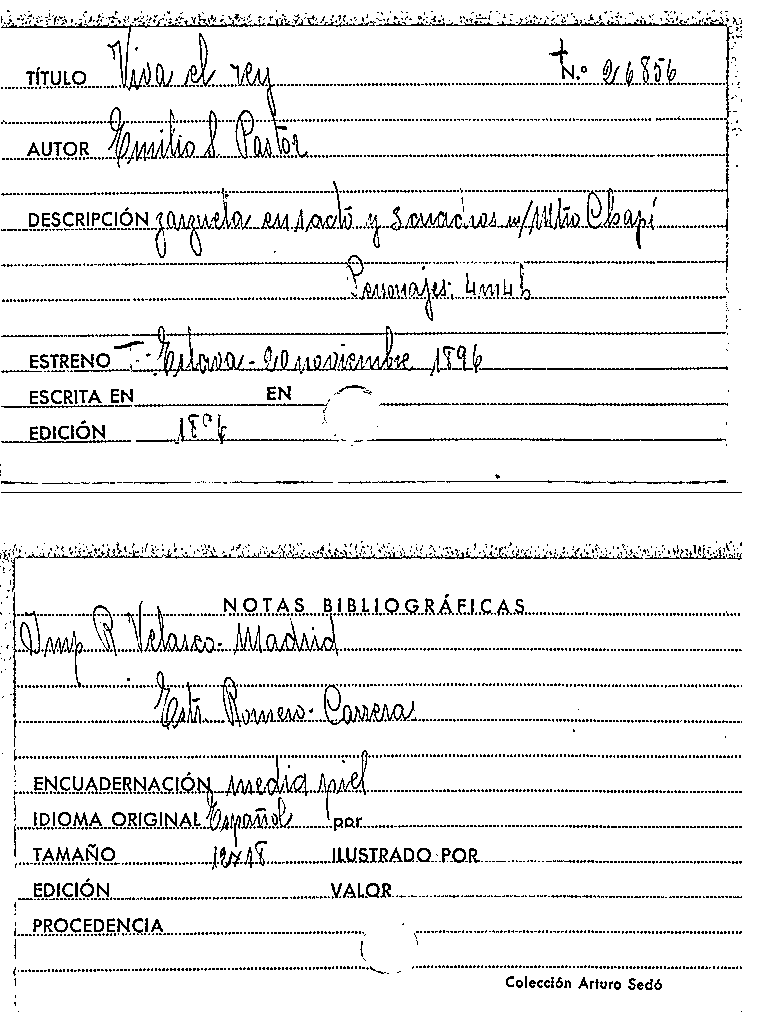 TÍTULO Viva el rey N.º 26856
AUTOR Emilio S. Pastor
DESCRIPCIÓN zarzuela en 1 acto y 3 cuadros m/ Mtro Chapí
Personajes: 4m 4h
ESTRENO T.- Eslava - 20 noviembre 1896
ESCRITA EN EN
EDICIÓN 1896
NOTAS BIBLIOGRÁFICAS
Imp R Velasco - Madrid
Estr. Romero - Carrera
ENCUADERNACIÓN media piel
IDIOMA ORIGINAL Español por
TAMAÑO 12x18 ILUSTRADO POR
EDICIÓN VALOR
PROCEDENCIA
Colección Arturo Sedó